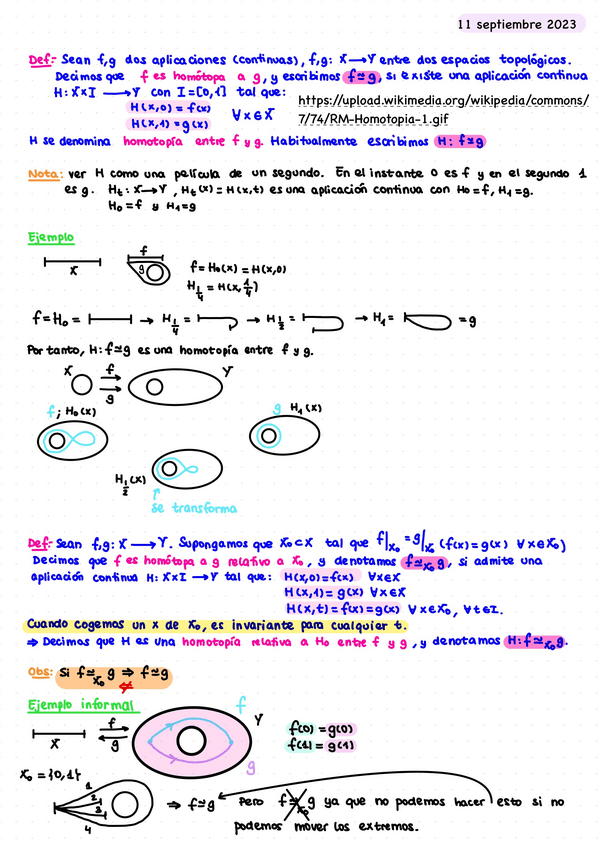 11 septiembre 2023
Def:- Sean f,g dos aplicaciones (continuas), f,g: X → Y entre dos espacios topológicos.
Decimos que f es homótopa a g, y escribimos f≃g, si existe una aplicación continua
H: X×I → Y con I=[0,1] tal que:
H(x,0) = f(x)
H(x,1) = g(x)
∀x∈X
https://upload.wikimedia.org/wikipedia/commons/
7/74/RM-Homotopia-1.gif
H se denomina homotopía entre f y g. Habitualmente escribimos H: f≃g
Nota: ver H como una película de un segundo. En el instante 0 es f y en el segundo 1
es g. Ht: X → Y, Ht(x) = H(x,t) es una aplicación continua con H0=f, H1=g.
H0=f y H1=g
Ejemplo
X
f
g
f = H0(x) = H(x,0)
H1/4 = H(x,1/4)
f = H0 = → H1/4 = → H1/2 = → H1 = = g
Por tanto, H: f≃g es una homotopía entre f y g.
X f Y
g
f; H0(x)
g H1(x)
H1/2(x)
se transforma
Def:- Sean f,g: X → Y. Supongamos que X0⊂X tal que f|X0 = g|X0 (f(x)=g(x) ∀x∈X0)
Decimos que f es homótopa a g relativo a X0, y denotamos f≃X0 g, si admite una
aplicación continua H: X×I → Y tal que: H(x,0)=f(x) ∀x∈X
H(x,1) = g(x) ∀x∈X
H(x,t) = f(x) = g(x) ∀x∈X0, ∀t∈I.
Cuando cogemos un x de X0, es invariante para cualquier t.
⇒ Decimos que H es una homotopía relativa a H0 entre f y g, y denotamos H: f≃X0 g.
Obs: Si f≃X0 g ⇒ f≃g
⇍
Ejemplo informal
X
f
g
f
Y
g
f(0) = g(0)
f(1) = g(1)
X0 = {0,1}
1
2
3
4
⇒ f≃g Pero f≃X0 g ya que no podemos hacer esto si no
podemos mover los extremos.